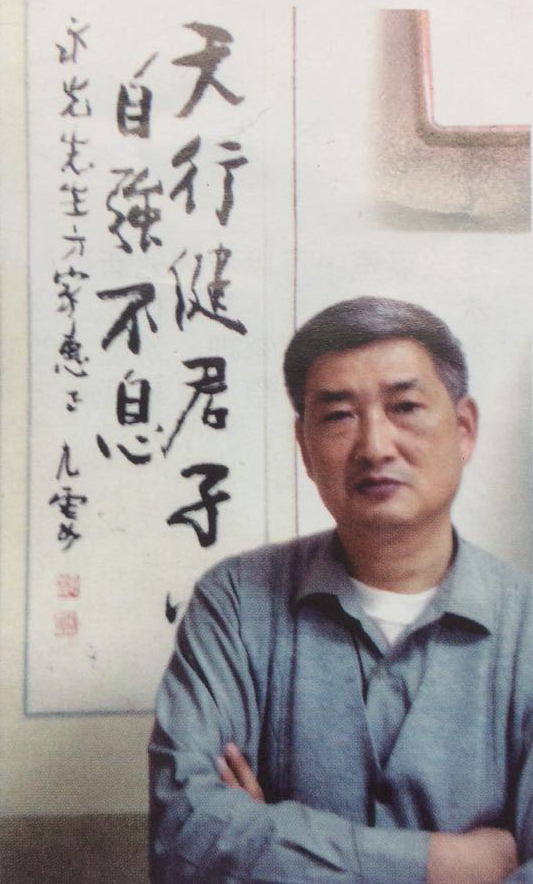 天行健君子以
自強不息
永先先生方家惠正 九雲